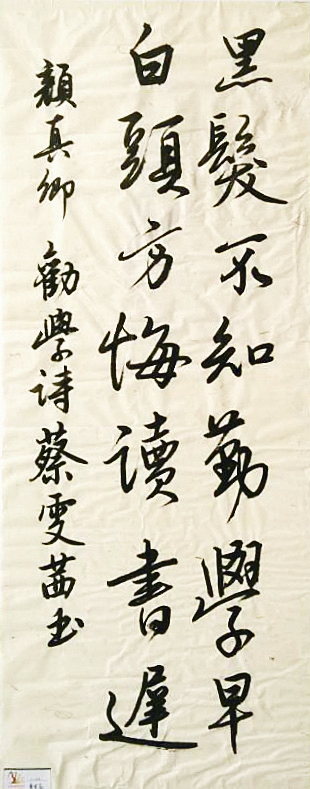 黑髮不知勤學早
白頭方悔讀書遲
顏真卿 勸學詩 蔡雯茜書